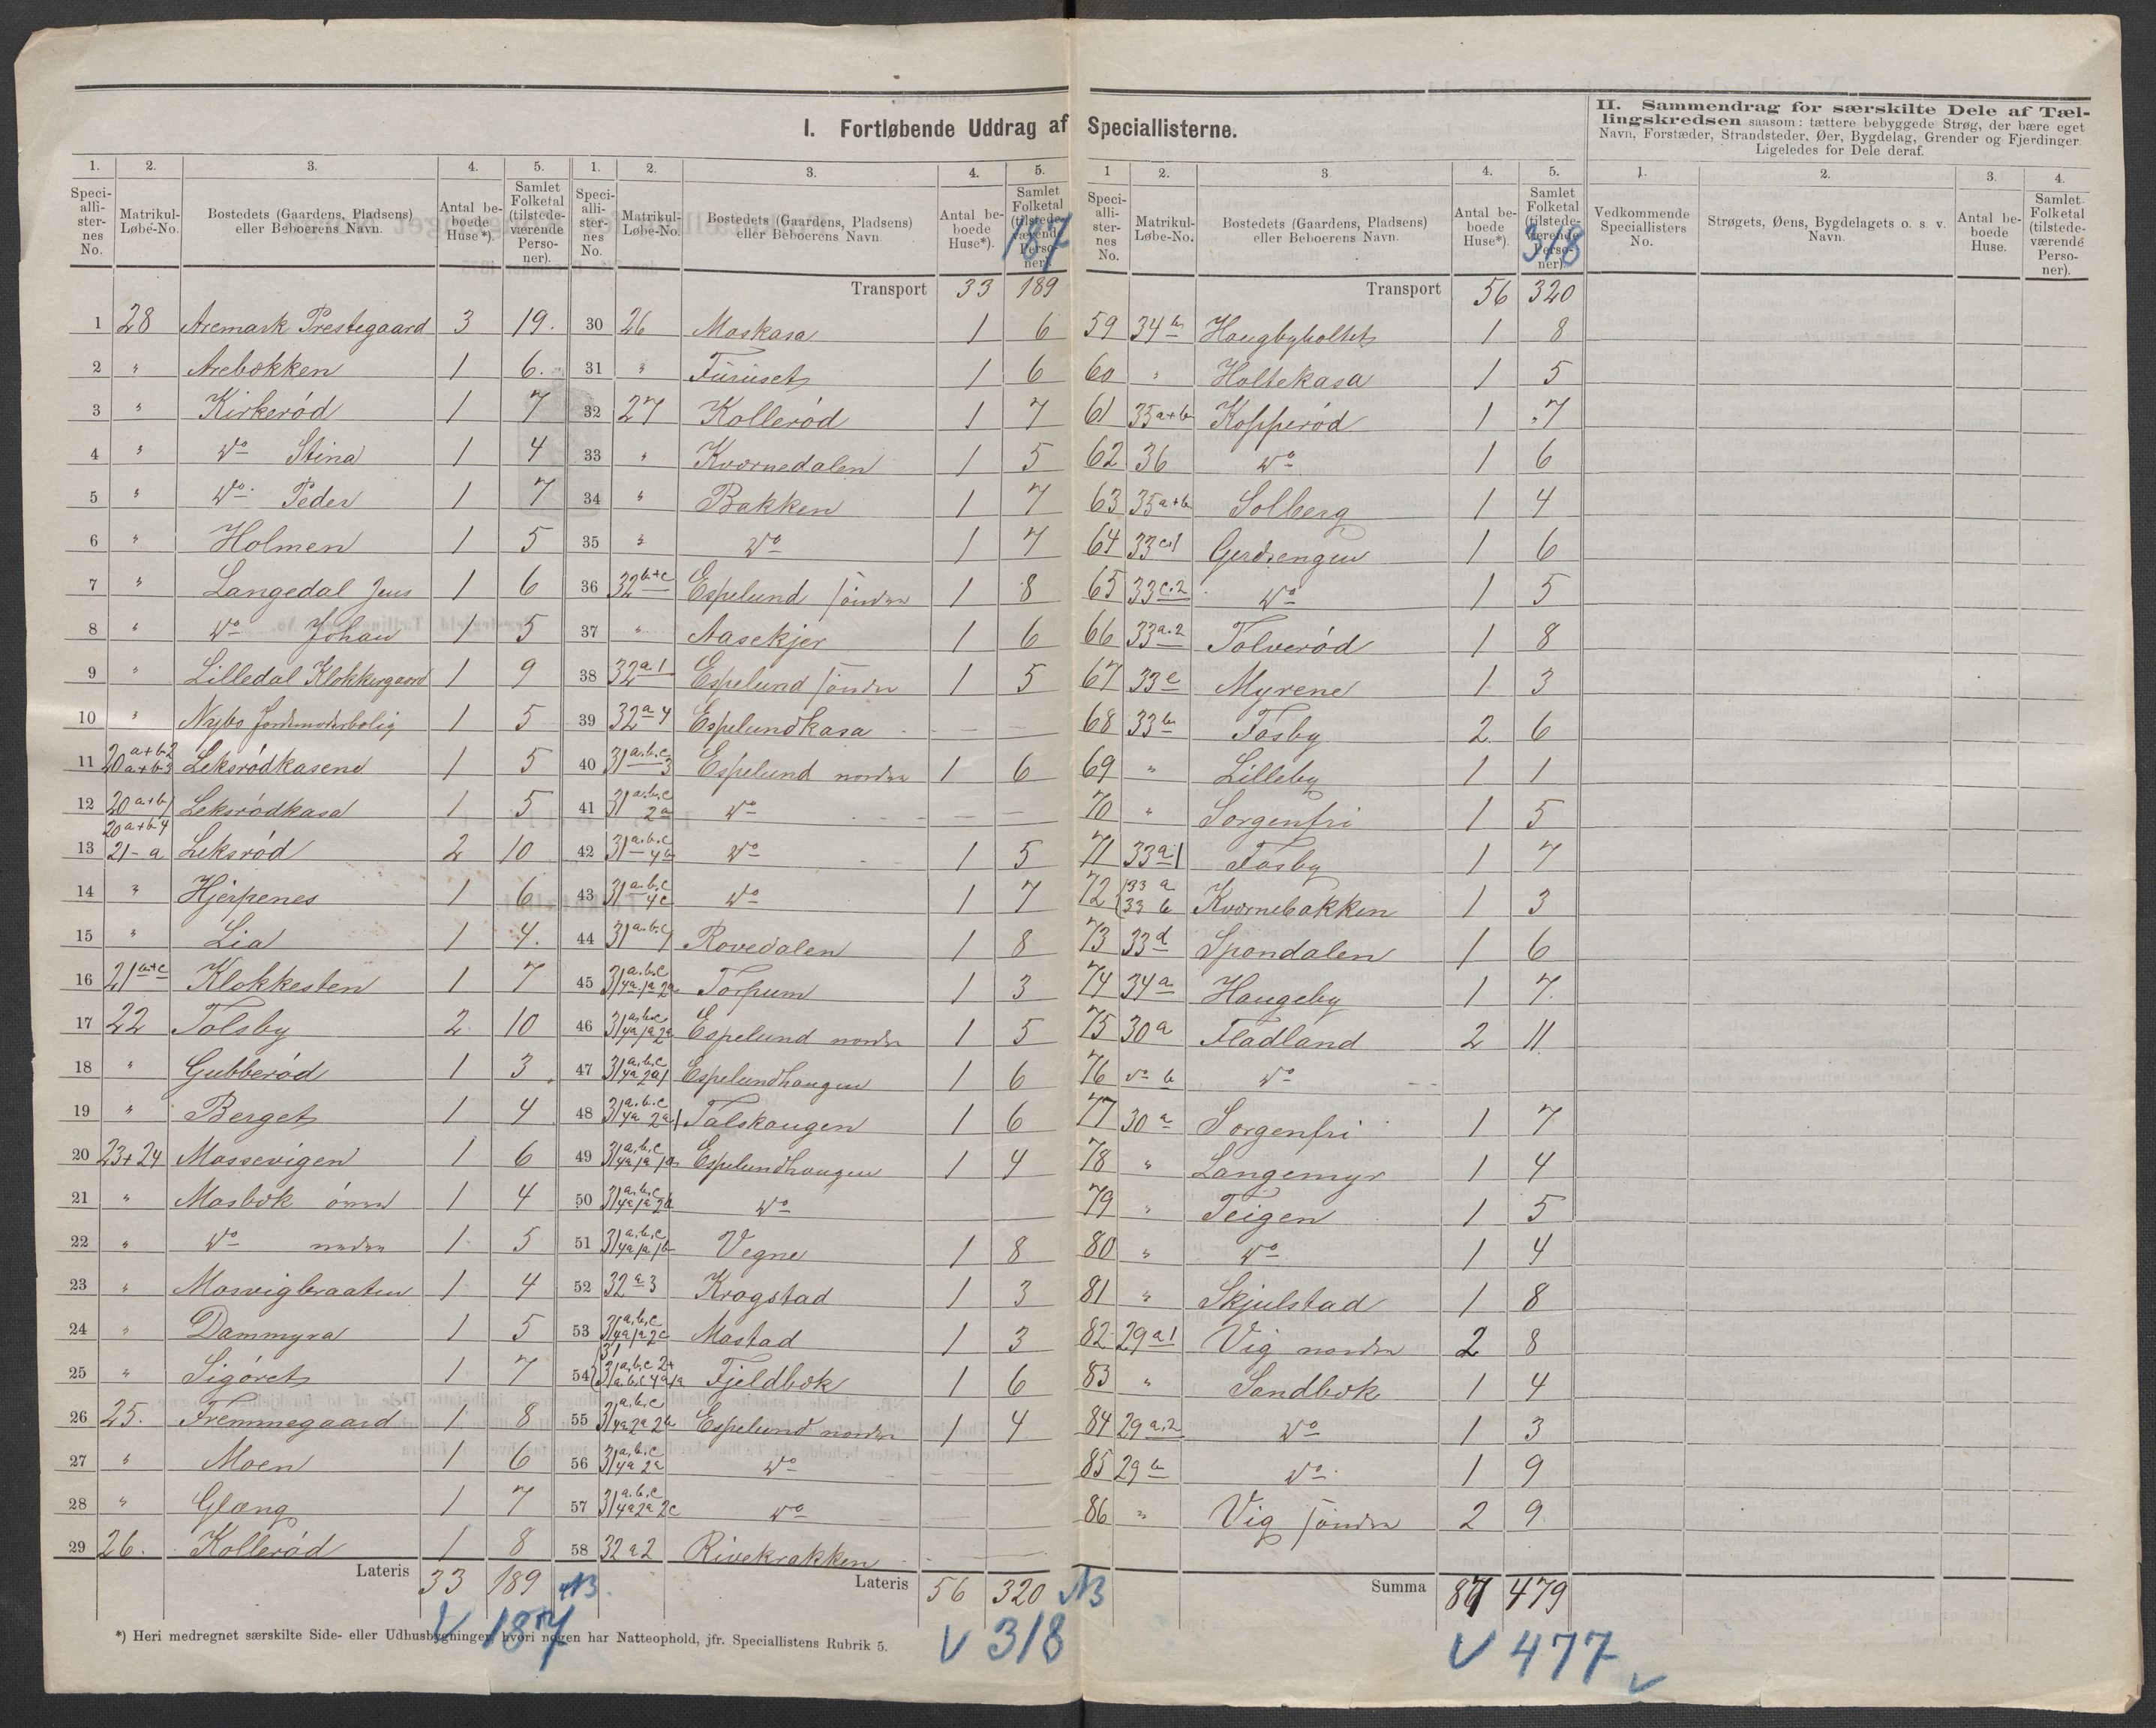 I. Fortløbende Uddrag af Speciallisterne.
II. Sammendrag for særskilte Dele af Tæl-
lingskredsen saasom: tættere bebyggede Strøg, der bære eget
Navn, Forstæder, Strandsteder, Øer, Bygdelag, Grender og Fjerdinger.
Ligeledes for Dele deraf.
1. 2. 3. 4. 5.
Speci-
alli-
ster-
nes
No.
Matrikul-
Løbe-No.
Bostedets (Gaardens, Pladsens)
eller Beboerens Navn.
Antal be-
boede
Huse*).
Samlet
Folketal
(tilstede-
værende
Perso-
ner).
1 28 Aremark Prestegaard 3 19.
2 " Arebækken 1 6.
3 " Kirkerød 1 7
4 " Do Stina 1 4
5 " Do Peder 1 7
6 " Holmen 1 5
7 " Langedal Jens 1 6
8 " Do Johan 1 5
9 " Lilledal Klokkergaard 1 9
10 " Nybo Jordemoderbolig 1 5
11 20 a+b2 20 a+b3 Leksrødkasene 1 5
12 20 a+b1 Leksrødkasa 1 5
13 20 a+b4 21-a Leksrød 2 10
14 " Hjerpenes 1 6
15 " Lia 1 4.
16 21 b+c Klokkesten 1 7
17 22 Tolsby 2 10
18 " Gubberød 1 3
19 " Berget 1 4
20 23+24 Massevigen 1 6
21 " Mosbæk øvre 1 4
22 " Do nedre 1 5
23 " Mosvigbraaten 1 4
24 " Dammyra 1 5
25 " Sigøret 1 7
26 25. Fremmegaard 1 8
27 " Moen 1 6
28 " Glæng 1 7
29 26. Kollerød 1 8
Lateris 33 189 NB.
V 187
*) Heri medregnet særskilte Side- eller Udhusbygninger, hvori nogen har Natteophold, jfr. Speciallistens Rubrik 5.
1. 2. 3. 4. 5.
Speci-
alli-
ster-
nes
No.
Matrikul-
Løbe-No.
Bostedets (Gaardens, Pladsens)
eller Beboerens Navn.
Antal be-
boede
Huse*).
Samlet
Folketal
(tilstede-
værende
Perso-
ner).
187
Transport 33 189
30 26 Moskasa 1 6
31 " Furuset 1 6
32 27 Kollerød 1 7
33 " Kværnedalen 1 5
34 " Bakken 1 7
35 " Do 1 7
36 32 b+c Espelund søndre 1 8
37 " Aasekjer 1 6
38 32 a1 Espelund søndre 1 5
39 32 a4 Espelundkasa — —
40 31 a.b.c 3 Espelund nordre 1 6
41 31 a.b.c 2a Do — —
42 31 a.b.c 4b Do 1 5
43 31 a.b.c 4c Do 1 7
44 31 a.b.c 1 Rovedalen 1 8
45 31 a.b.c 4a 1a 2a Torpum 1 3
46 31 a.b.c 4a 1a 2a Espelund nordre 1 5
47 31 a.b.c 4a 2a1 Espelundhaugen 1 6
48 31 a.b.c 4a 2a1 Talskaugen 1 6
49 31 a.b.c 4a 1a 1a Espelundhaugen 1 4
50 31 a.b.c 4a 1a 2b Do
51 31 a.b.c 4a 1a 1b Vegne 1 8
52 32 a3 Krogstad 1 3
53 31 a.b.c 4a 1a 2c Mostad 1 3
54 31 31 a.b.c 2+ a.b.c 4a 1a Fjeldbæk 1 6
55 31 a.b.c 4a 2a 2b Espelund nordre 1 4
56 31 a.b.c 4a 2a Do — —
57 31 a.b.c 4a 2a 2c Do
58 32 a2 Rivekrakken
Lateris 56 320 NB
V 318
1 2. 3. 4. 5.
Speci-
alli-
ster-
nes
No.
Matrikul-
Løbe-No.
Bostedets (Gaardens, Pladsens)
eller Beboerens Navn.
Antal be-
boede
Huse*).
Samlet
Folketal
(tilstede-
værende
Perso-
ner).
318
Transport 56 320
59 34 b Haugbyholtet 1 8
60 " Holtekasa 1 5
61 35 a+b Kopperød 1 7
62 36 Do 1 6
63 35 a+b Solberg 1 4
64 33 c.1 Gjerdsengen 1 6
65 33 c.2 Do 1 5
66 33 a.2 Tolverød 1 8
67 33 e Myrene 1 3
68 33 b Fosby 2 6
69 " Lilleby 1 1
70 " Sorgenfri 1 5
71 33 a1 Fosby 1 7
72 33 a 33 b Kværnebakken 1 3
73 33 d Spondalen 1 6
74 34 a Haugeby 1 7
75 30 a Fladland 2 11
76 do b Do — —
77 30 a Sorgenfri 1 7
78 " Langemyr 1 4
79 " Teigen 1 5
80 " Do 1 4
81 " Skjulstad 1 8
82 29 a1 Vig nordre 2 8
83 " Sandbæk 1 4
84 29 a.2 Do 1 3
85 29 b Do 1 9
86 " Vig søndre 2 9
Summa 87 479
V 477 v
1. 2. 3. 4.
Vedkommende
Speciallisters
No.
Strøgets, Øens, Bygdelagets o. s. v.
Navn.
Antal be-
boede
Huse.
Samlet
Folketal
(tilstede-
værende
Perso-
ner).